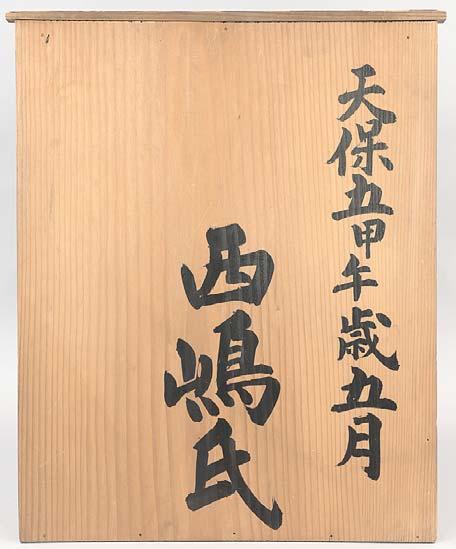 天保五甲午歳五月
西嶋氏